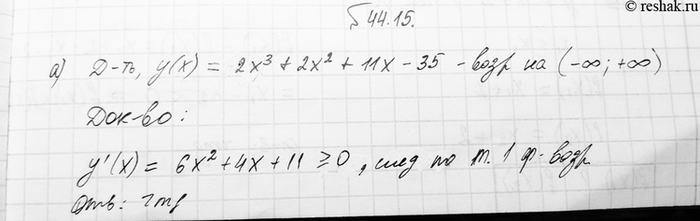 © reshak.ru
§ 44.15.
а) Д-ть, y(x) = 2x³ + 2x² + 11x - 35 - возр на (-∞; +∞)
Док-во:
y'(x) = 6x² + 4x + 11 ≥ 0, след по т. 1 ф- возр
Отв: чтд